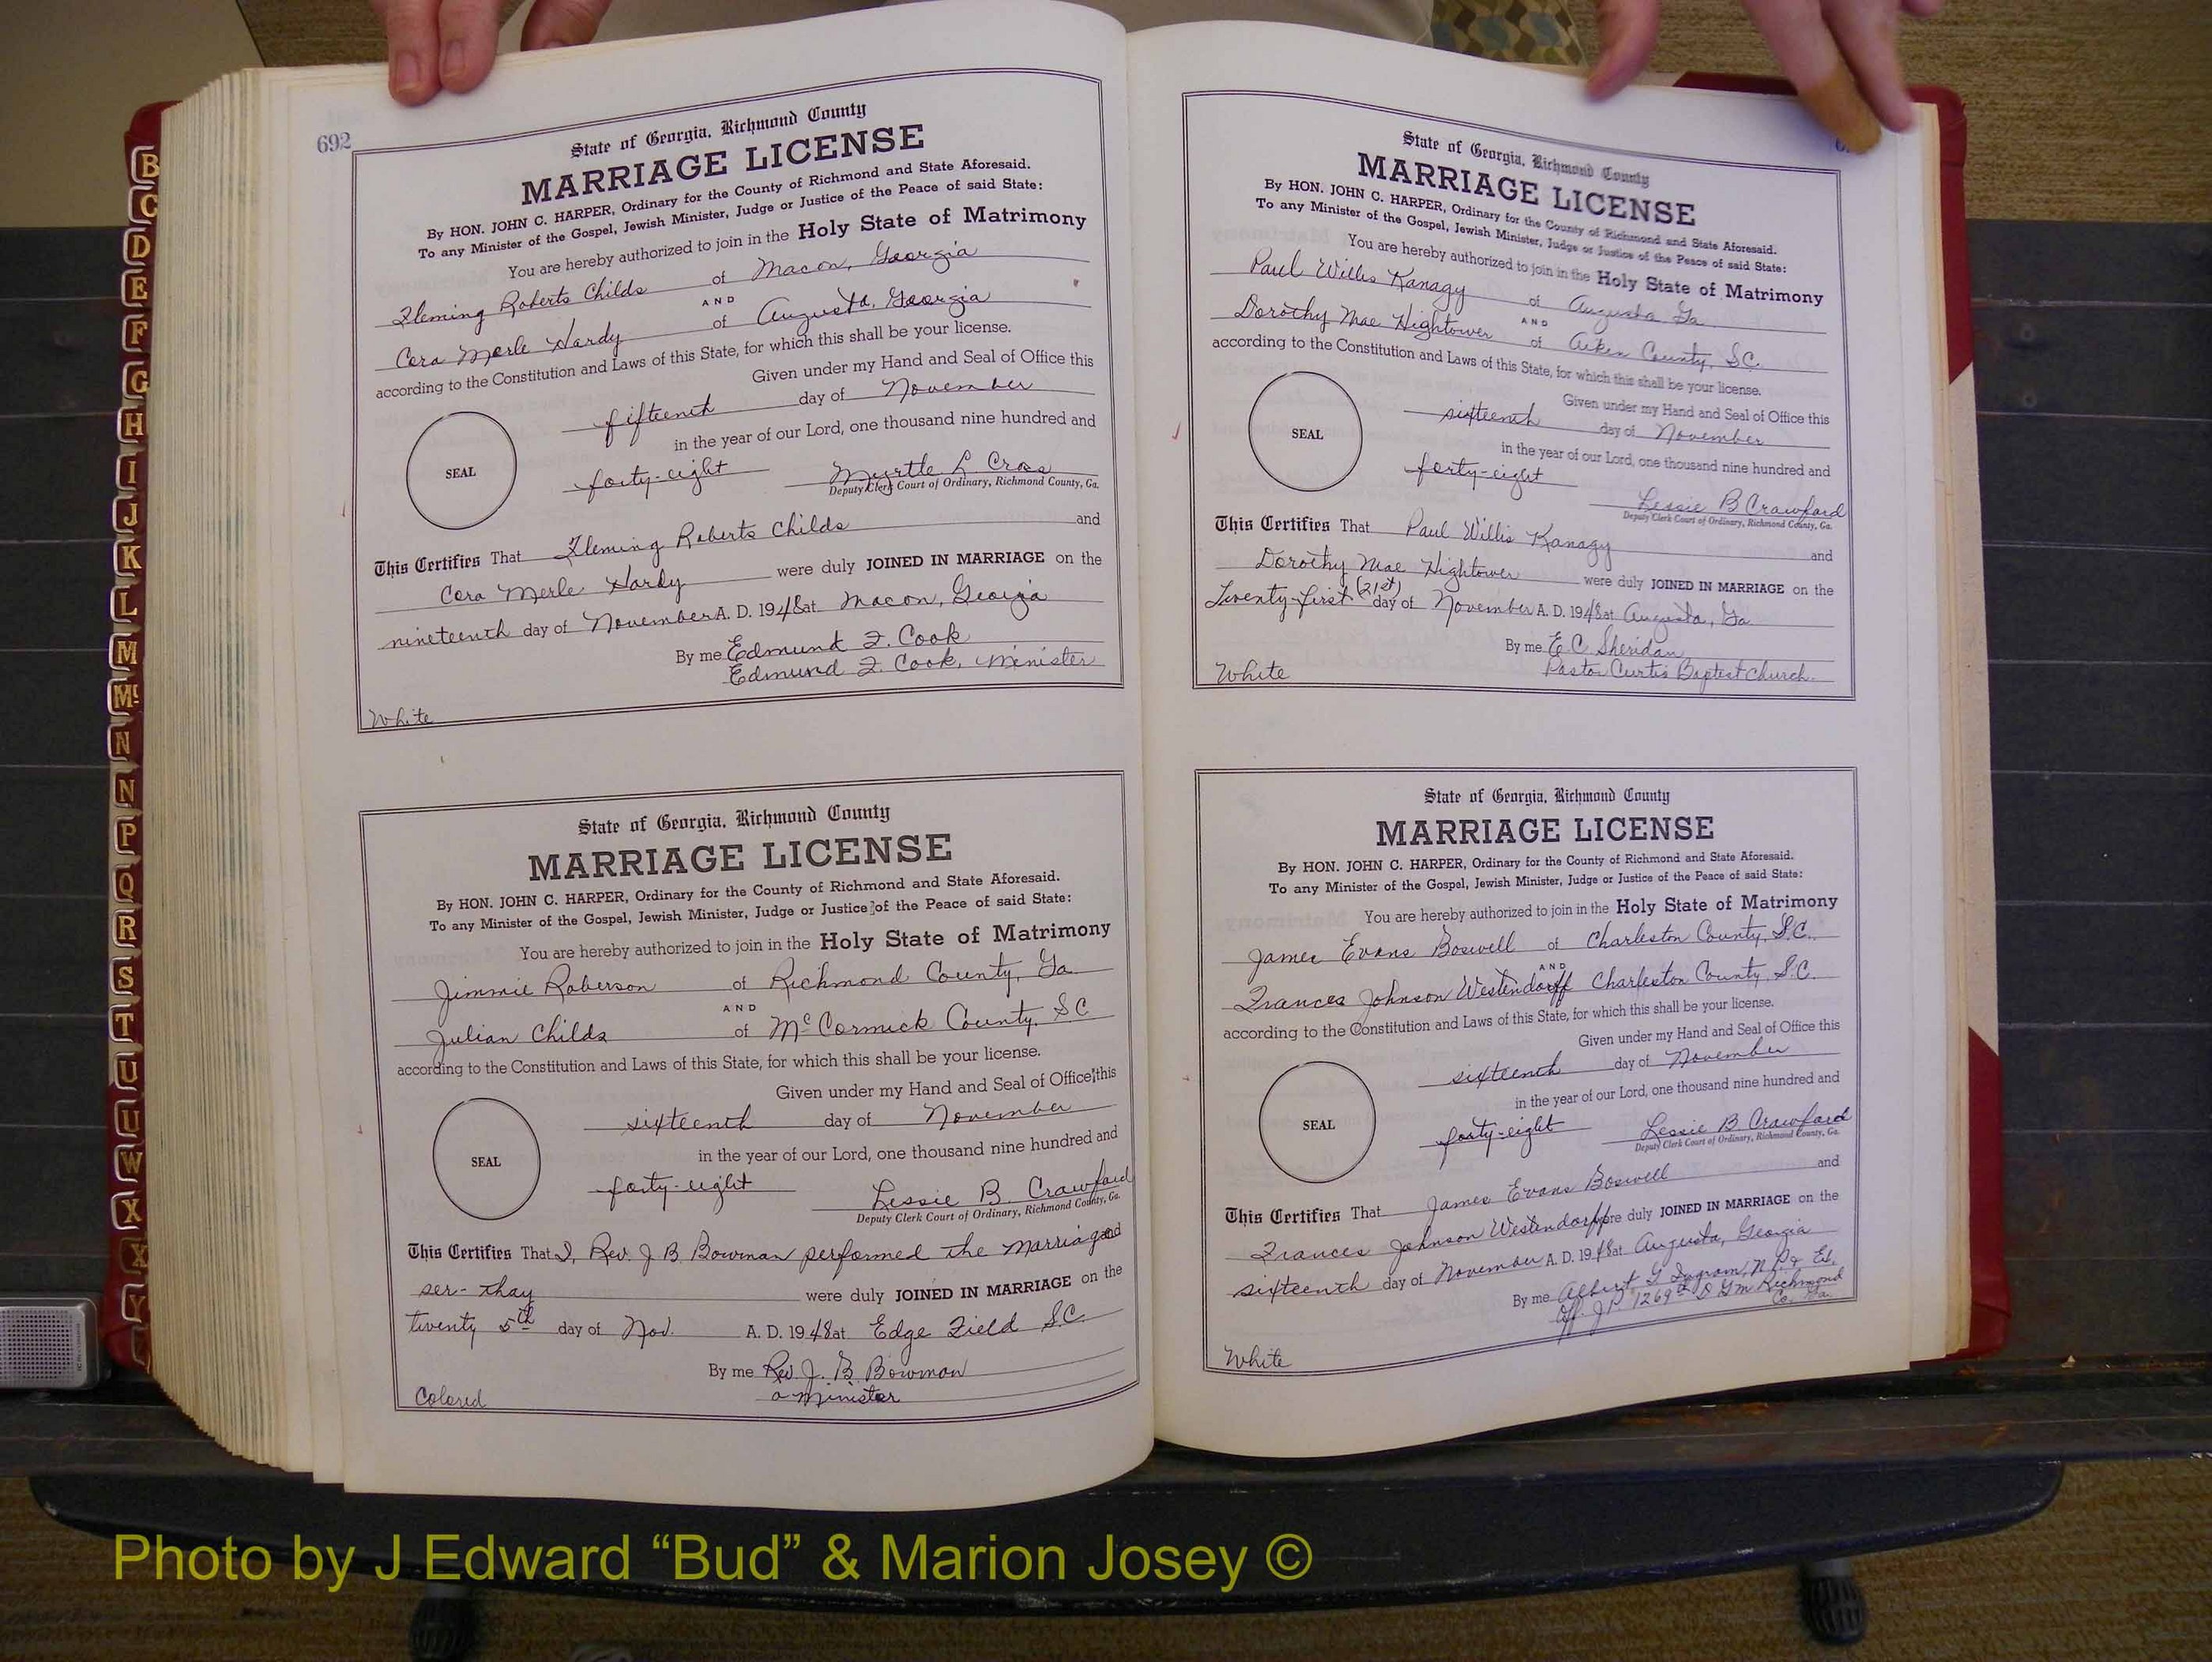 692
State of Georgia, Richmond County
MARRIAGE LICENSE
By HON. JOHN C. HARPER, Ordinary for the County of Richmond and State Aforesaid.
To any Minister of the Gospel, Jewish Minister, Judge or Justice of the Peace of said State:
You are hereby authorized to join in the Holy State of Matrimony
Fleming Roberts Childs of Macon, Georgia
AND
Cora Merle Hardy of Augusta, Georgia
according to the Constitution and Laws of this State, for which this shall be your license.
Given under my Hand and Seal of Office this
fifteenth day of November
in the year of our Lord, one thousand nine hundred and
SEAL
forty-eight Myrtle L. Cross
Deputy Clerk Court of Ordinary, Richmond County, Ga.
This Certifies That Fleming Roberts Childs and
Cora Merle Hardy were duly JOINED IN MARRIAGE on the
nineteenth day of November A. D. 1948 at Macon, Georgia
By me Edmund F. Cook
Edmund F. Cook, Minister
White
State of Georgia, Richmond County
MARRIAGE LICENSE
By HON. JOHN C. HARPER, Ordinary for the County of Richmond and State Aforesaid.
To any Minister of the Gospel, Jewish Minister, Judge or Justice of the Peace of said State:
You are hereby authorized to join in the Holy State of Matrimony
Jimmie Roberson of Richmond County, Ga.
AND
Julian Childs of McCormick County, SC
according to the Constitution and Laws of this State, for which this shall be your license.
Given under my Hand and Seal of Office this
sixteenth day of November
in the year of our Lord, one thousand nine hundred and
SEAL
forty-eight Lessie B. Crawford
Deputy Clerk Court of Ordinary, Richmond County, Ga.
This Certifies That I, Rev. J. B. Bowman performed the Marriage and
ser- thay were duly JOINED IN MARRIAGE on the
twenty 5th day of Nov. A. D. 1948 at Edge Field S.C.
By me Rev. J. B. Bowman
a Minister
Colored
State of Georgia, Richmond County
MARRIAGE LICENSE
By HON. JOHN C. HARPER, Ordinary for the County of Richmond and State Aforesaid.
To any Minister of the Gospel, Jewish Minister, Judge or Justice of the Peace of said State:
You are hereby authorized to join in the Holy State of Matrimony
Paul Willis Kanagy of Augusta Ga.
AND
Dorothy Mae Hightower of Aiken County, SC.
according to the Constitution and Laws of this State, for which this shall be your license.
Given under my Hand and Seal of Office this
sixteenth day of November
in the year of our Lord, one thousand nine hundred and
SEAL
forty-eight
Lessie B Crawford
Deputy Clerk Court of Ordinary, Richmond County, Ga.
This Certifies That Paul Willis Kanagy and
Dorothy Mae Hightower were duly JOINED IN MARRIAGE on the
Twenty-first (21st) day of November A. D. 1948 at Augusta, Ga
By me E C Sheridan
Pastor Curtis Baptist Church.
White
State of Georgia, Richmond County
MARRIAGE LICENSE
By HON. JOHN C. HARPER, Ordinary for the County of Richmond and State Aforesaid.
To any Minister of the Gospel, Jewish Minister, Judge or Justice of the Peace of said State:
You are hereby authorized to join in the Holy State of Matrimony
James Evans Boswell of Charleston County, S.C.
AND
Frances Johnson Westendorff Charleston County, S.C.
according to the Constitution and Laws of this State, for which this shall be your license.
Given under my Hand and Seal of Office this
sixteenth day of November
in the year of our Lord, one thousand nine hundred and
SEAL
forty-eight Lessie B. Crawford
Deputy Clerk Court of Ordinary, Richmond County, Ga.
This Certifies That James Evans Boswell and
Frances Johnson Westendorff were duly JOINED IN MARRIAGE on the
sixteenth day of November A. D. 1948 at Augusta, Georgia
By me Albert G Ingram, N.P. & Ex.
Off. J.P. 1269th D G M Richmond
Co. Ga.
White
B
C
D
E
F
G
H
I
J
K
L
M
Mc
N
N
P
Q
R
S
T
U
U
W
X
X
Y
Photo by J Edward “Bud” & Marion Josey ©